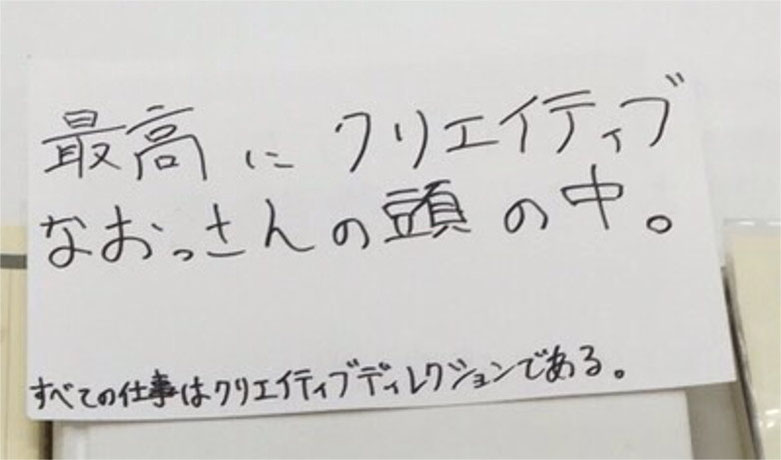 最高にクリエイティブ
なおっさんの頭の中。
すべての仕事はクリエイティブディレクションである。